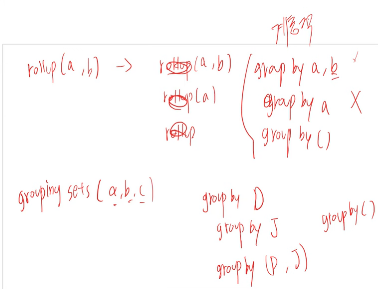 계층적
rollup(a,b) -> rollup(a,b) group by a, b
rollup(a) group by a X
rollup group by ()
grouping sets (a, b, c) group by D
group by J group by ()
group by (D, J)